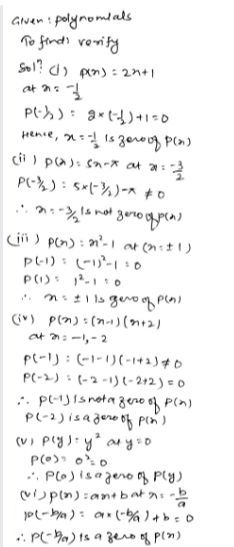 Given : polynomials
To find: verify
Solⁿ (i) p(x) = 2x+1
at x = -1/2
P(-1/2) = 2×(-1/2)+1=0
Hence, x = -1/2 is zero of P(x)
(ii) p(x) = 5x-π at x = -3/2
P(-3/2) = 5×(-3/2)-π ≠ 0
∴ x = -3/2 is not zero of p(x)
(iii) P(x) = x²-1 at (x=±1)
P(-1) = (-1)²-1 = 0
P(1) = 1²-1 = 0
∴ x = ±1 is zero of P(x)
(iv) P(x) = (x-1)(x+2)
at x = -1, -2
P(-1) = (-1-1)(-1+2) ≠ 0
P(-2) = (-2-1)(-2+2) = 0
∴ P(-1) is not a zero of P(x)
P(-2) is a zero of P(x)
(v) P(y) = y² at y=0
P(0) = 0² = 0
∴ P(0) is a zero of P(y)
(vi) p(x) = ax+b at x = -b/a
p(-b/a) = a×(-b/a)+b = 0
∴ P(-b/a) is a zero of P(x)